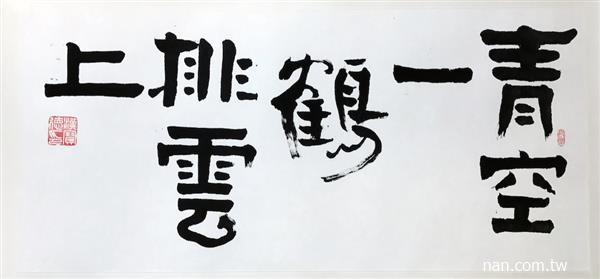 青空
一
鶴
排雲
上
nan.com.tw